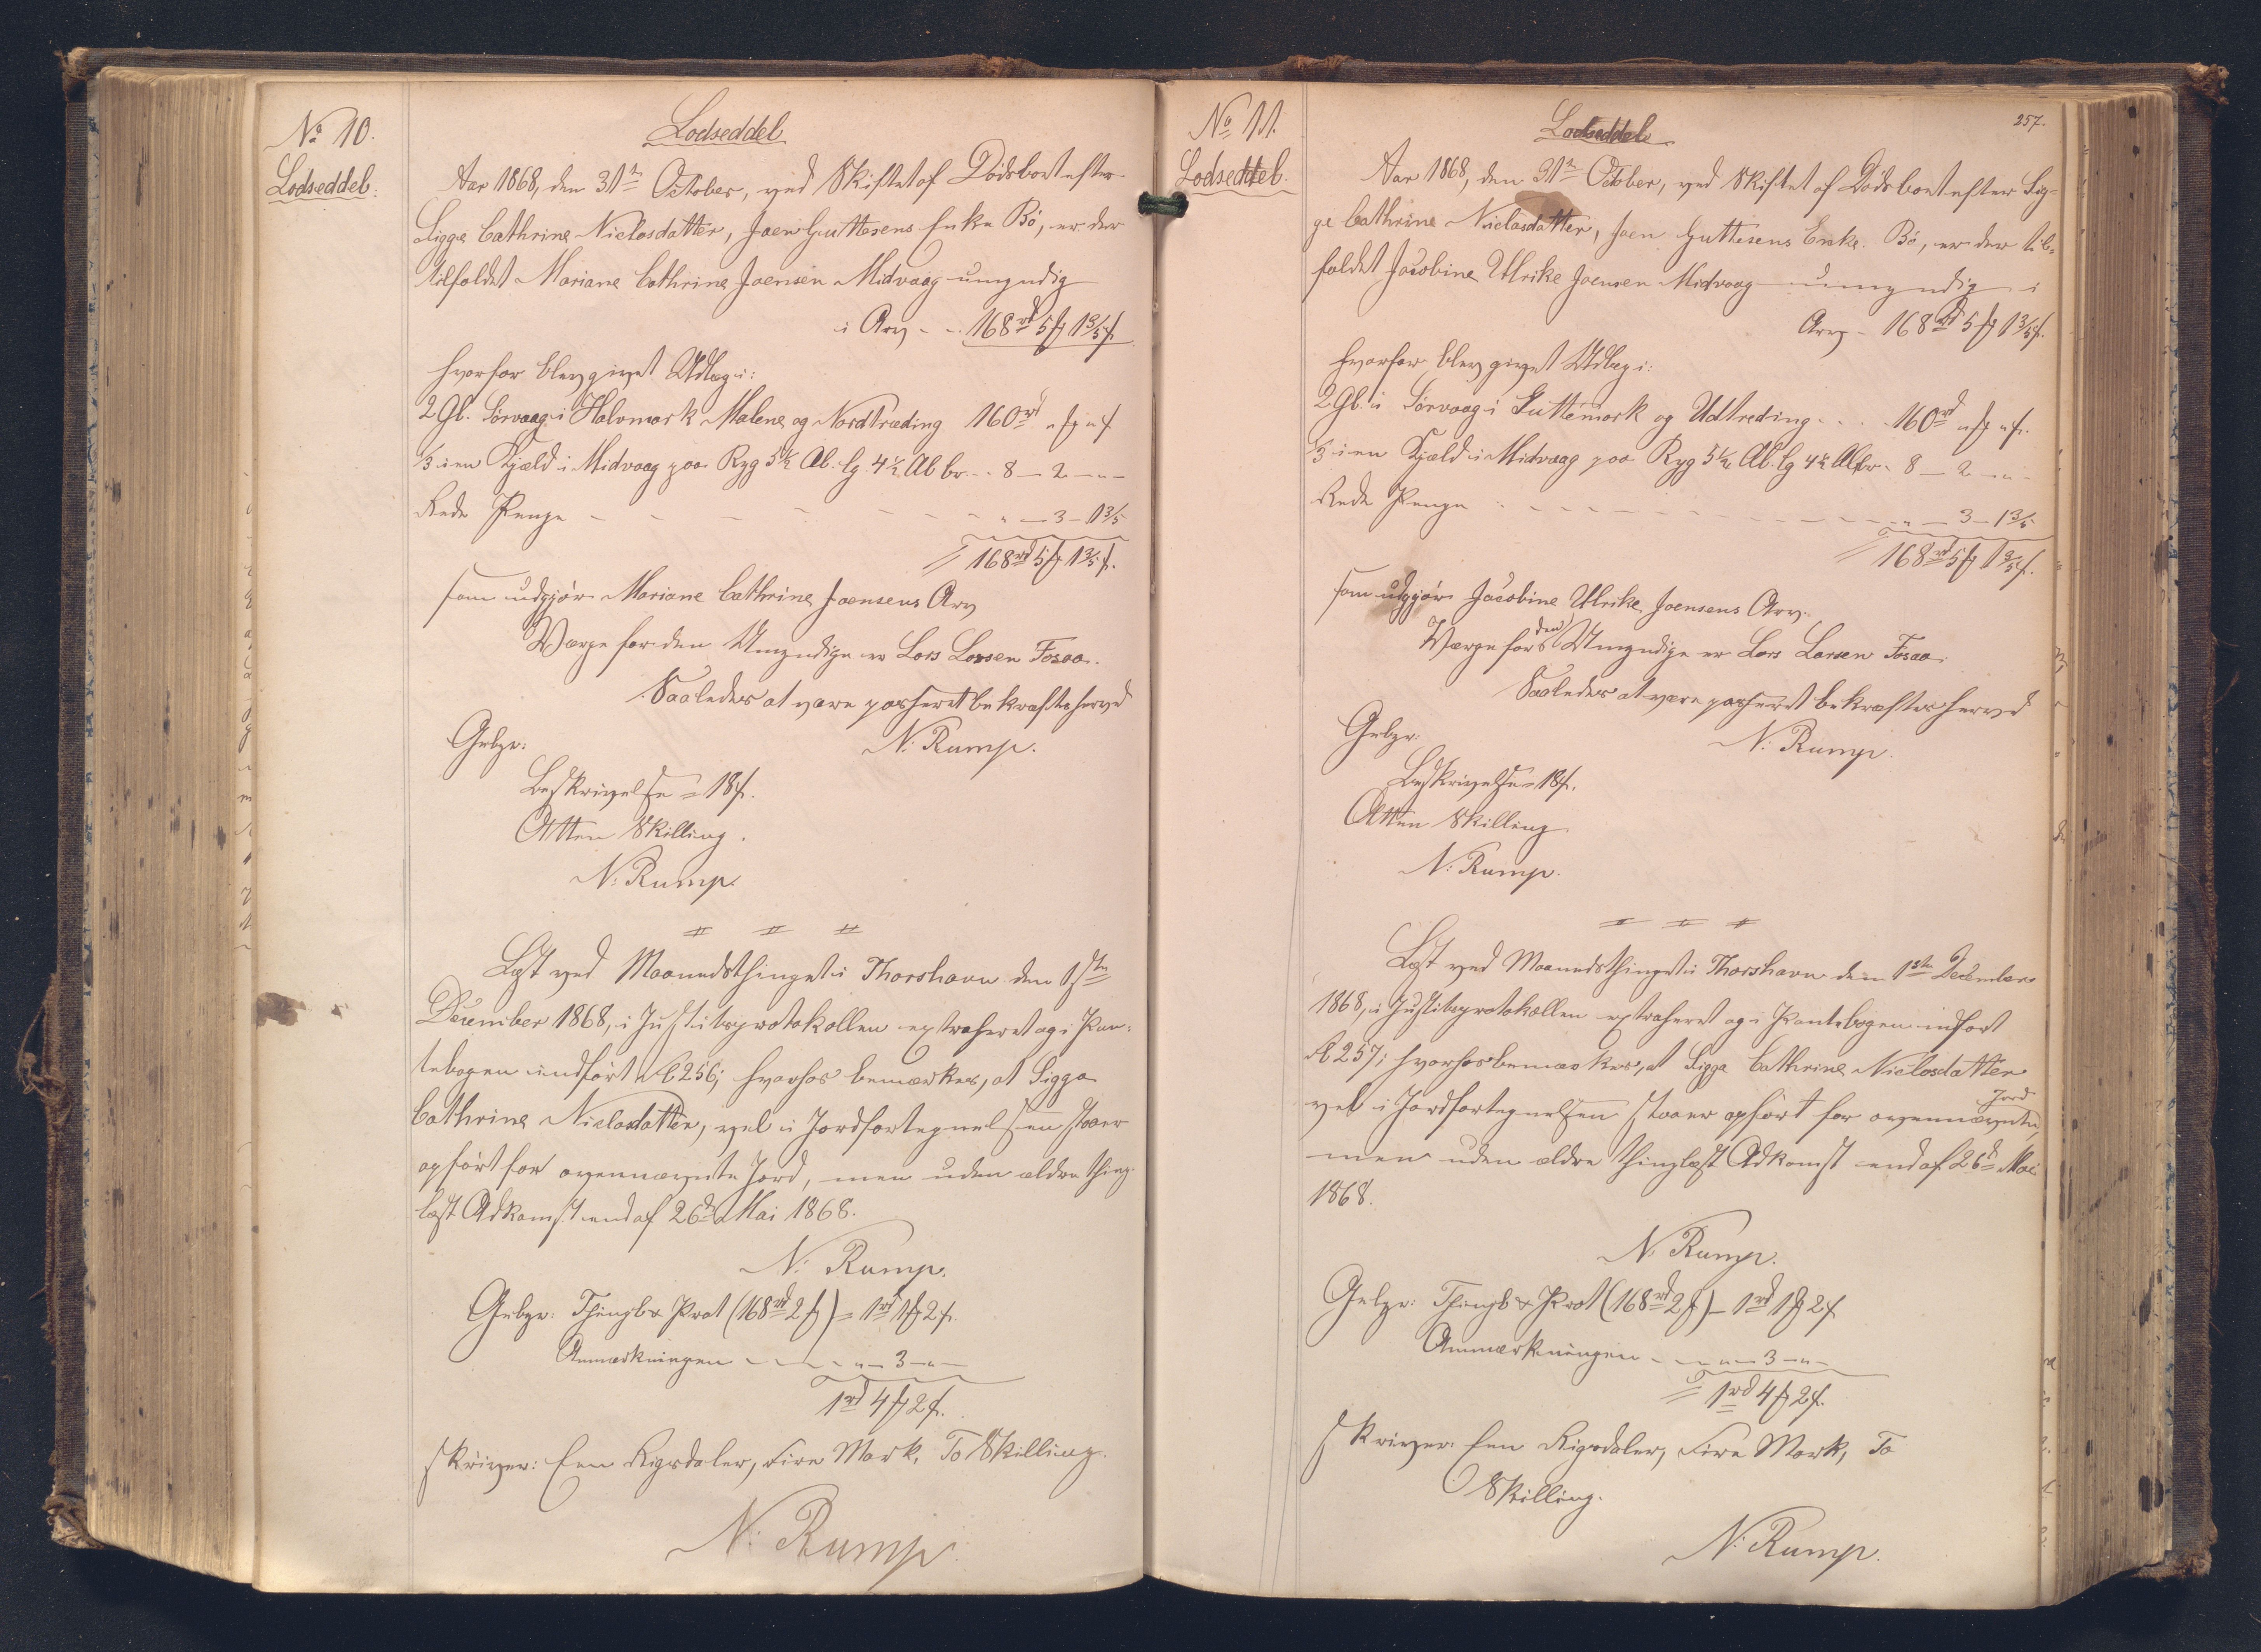 No 10.
Lodseddel.
Lodseddel
Aar 1868, den 31te October, ved Skiftet af Dödsboet efter
Sigga Cathrine Niclasdatter, Joen Guttesens Enke Bö, er der
tilfaldet Mariane Cathrine Joensen Midvaag umyndig
i Arv - - 168rd 5 mk 1 3/5 s.
hvorfor blev givet Udlæg i:
2 Gl. Sörvaag i Halvmark Malene og Nordtræding 160rd " mk " s
1/3 i en Kjæld i Midvaag paa Ryg 5 1/2 Al. lg 4 1/2 Al br - - 8 - 2 - " -
Rede Penge - - - - - - - " - 3 - 1 3/5
168rd 5 mk 1 3/5 s.
som udgjör Mariane Cathrine Joensens Arv
Værge for den Umyndige er Lars Larsen Fosaa.
Saaledes at være passeret bekræftes herved
N. Rump.
Gebyr:
Beskrivelse = 18 s.
Atten Skilling.
N. Rump.
Læst ved Maanedsthinget i Thorshavn den 1ste
December 1868, i Justitsprotokollen extraheret og i Pan-
tebogen indført Fol 256; hvorhos bemærkes, at Sigga
Cathrine Niclasdatter, vel i Jordfortegnelsen staaer
opført for ovennævnte Jord, men uden ældre thing-
læst Adkomst end af 26de Mai 1868.
N. Rump.
Gebyr: Thingl & Prot (168rd 2 mk) = 1rd 1 mk 2 s.
Anmærkningen - - - " - 3 - " -
1rd 4 mk 2 s.
skriver: Een Rigsdaler, Fire Mark, To Skilling.
N. Rump
257.
No 11.
Lodseddel.
Lodseddel
Aar 1868, den 31te October, ved Skiftet af Dödsboet efter Sig-
ga Cathrine Niclasdatter, Joen Guttesens Enke Bö, er der til-
faldet Jacobine Ulrike Joensen Midvaag umyndig i
Arv - 168rd 5 mk 1 3/5 s.
hvorfor blev givet Udlæg i:
2 Gl. i Sörvaag i Guttemark og Udtræding - - - 160rd " mk " s.
1/3 i en Kjæld i Midvaag paa Ryg 5 1/2 Al. lg 4 1/2 Al br - 8 - 2 - " -
Rede Penge - - - - - - - " - 3 - 1 3/5
168rd 5 mk 1 3/5 s.
som udgjör Jacobine Ulrike Joensens Arv.
Værge for den Umyndige er Lars Larsen Fosaa.
Saaledes at være passeret bekræftes herved
N. Rump.
Gebyr:
Beskrivelse = 18 s.
Atten Skilling
N. Rump.
Læst ved Maanedsthinget i Thorshavn den 1ste December
1868, i Justitsprotokollen extraheret og i Pantebogen indført
Fol 257; hvorhos bemærkes, at Sigga Cathrine Niclasdatter
vel i Jordfortegnelsen staaer opført for ovennævnte Jord,
men uden ældre thinglæst Adkomst end af 26de Mai
1868.
N. Rump.
Gebyr: Thingl & Prot (168rd 2 mk) - 1rd 1 mk 2 s
Anmærkningen - - - " - 3 - " -
1rd 4 mk 2 s.
skriver: Een Rigsdaler, Fire Mark, To
Skilling.
N. Rump.